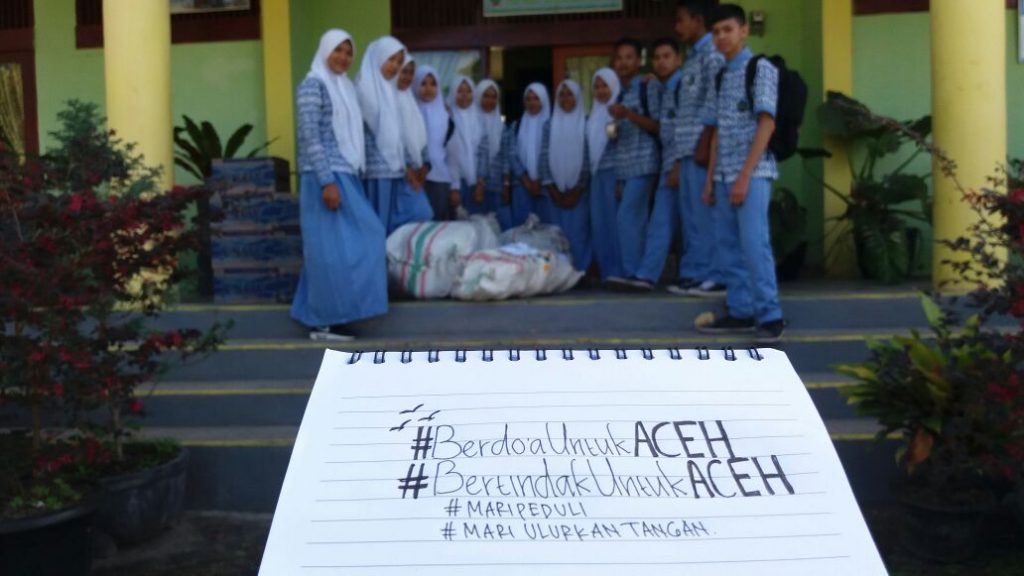 #Berdo'aUntukACEH
#BertindakUntukACEH
#MARIPEDULI
#MARI ULURKAN TANGAN.